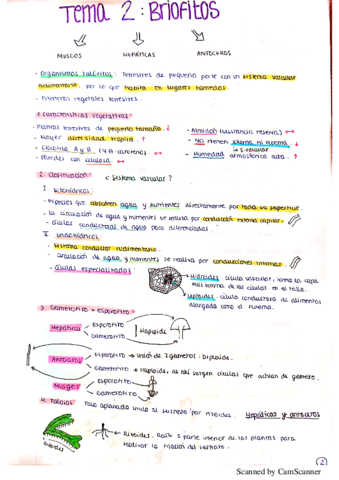 Tema 2: Briofitos
MUSCOS HEPÁTICAS ANTOCEROS
- Organismos : Terrestres de pequeño porte con un sistema vascular
rudimentario, por lo que habita en lugares húmedos.
- Primeros vegetales terrestres
1. Características vegetativas
- Plantas terrestres de pequeño tamaño. ↓
- Mayor diversidad trópica. ↑
- Clorofila A y B (y B carotenos). ↔
- Paredes con celulosa ↔
- Almidón (sustancia reserva) ↔
- No tienen xilema ni floema.
↳ S vascular
- Humedad atmosférica alta. ↑
2. Clasificación ¿Sistema vascular?
I. Ectohídricos.
- Especies que absorben agua y nutrientes directamente por toda su superficie.
- La circulación de agua y nutrientes se realiza por conducción externa capilar.
- Células conductoras de agua poco diferenciadas.
II. Endohídricos.
- Sistema conductor rudimentario.
- Circulación de agua y nutrientes se realiza por conducciones internas.
- Células especializadas
Hidroides: célula vascular, forma la capa
más interna de las células en el tallo.
Leptoides: célula conductora de alimentos
alargada como el floema.
3. Gametofito - esporofito
Hepáticas
Esporofito
Gametofito
Haploide
Antoceros
Esporofito → unión de 2 gametos: Diploide.
Gametofito → Haploide, de ahí surgen células que actúan de gameto.
Musgos
Esporofito
Gametofito
4. Talosos Talo aplanado unido al sustrato por rizoides. Hepáticas y antoceros
Rizoides: Raíz o parte inferior de las plantas para
realizar la fijación del sustrato.
2
Scanned by CamScanner